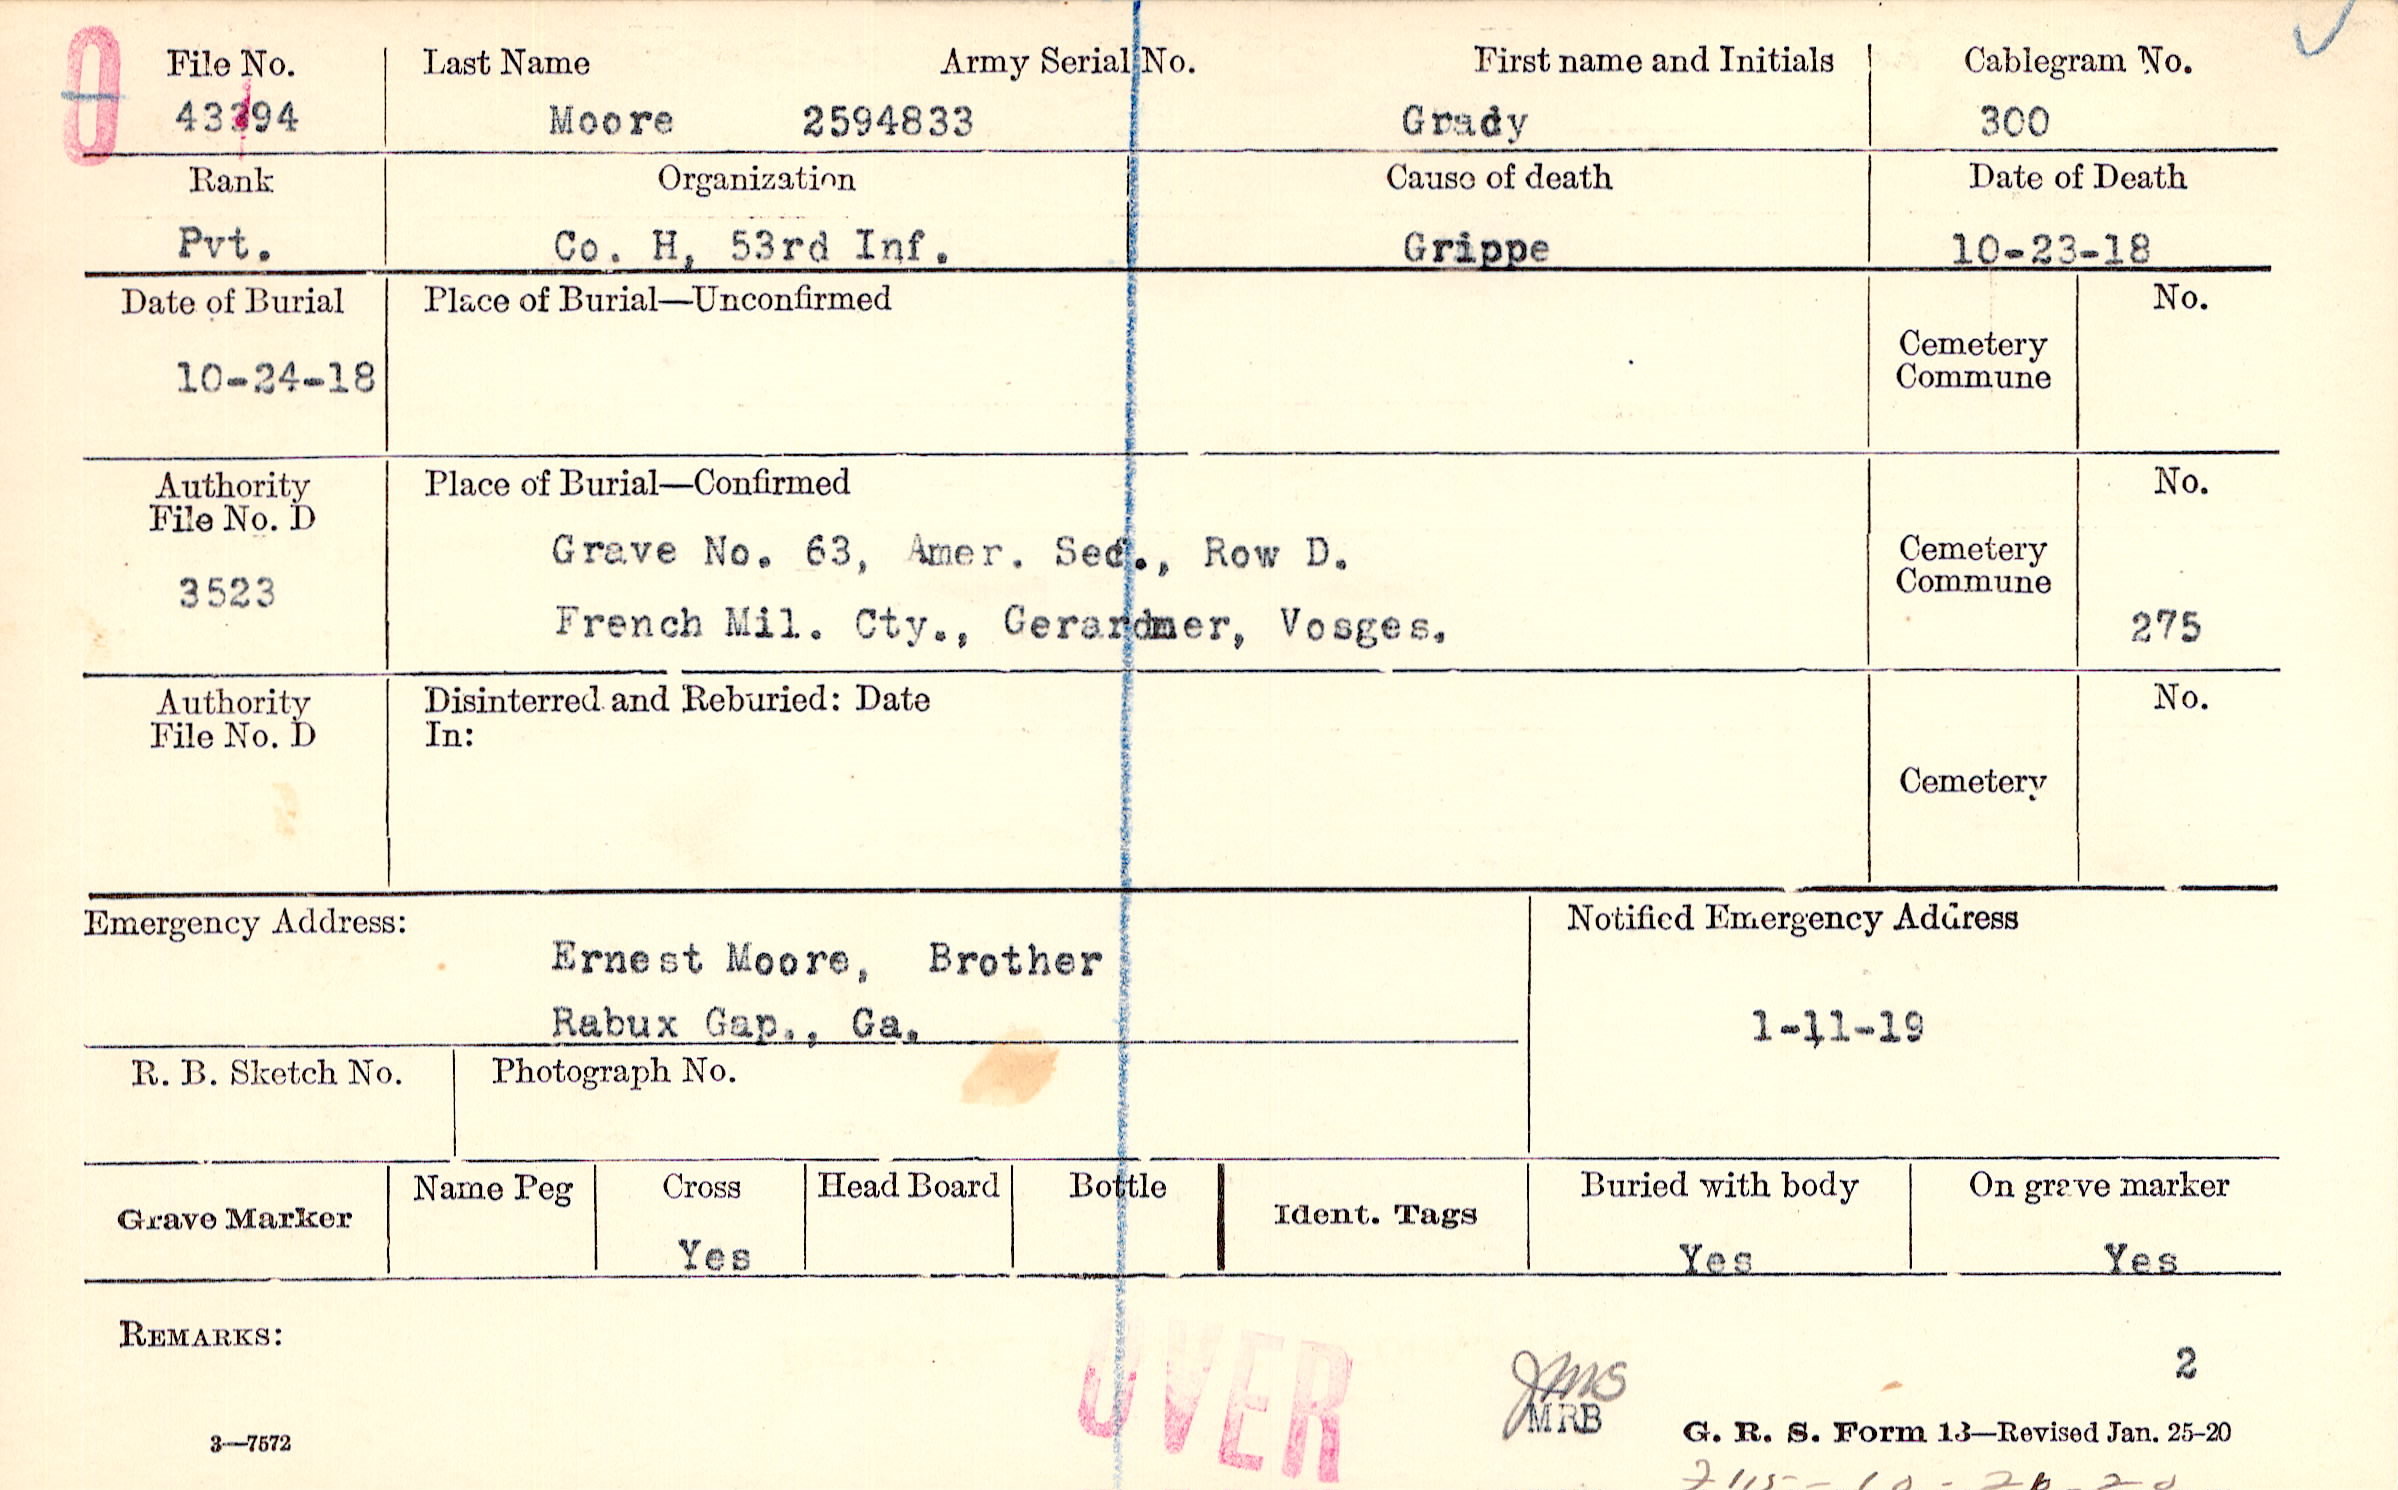 O
File No. Last Name Army Serial No. First name and Initials Cablegram No.
Moore 2594833 Grady 300
Rank Organization Cause of death Date of Death
Pvt. Co. H, 53rd Inf. Grippe 10-23-18
Date of Burial Place of Burial—Unconfirmed No.
Cemetery
Commune
10-24-18
Authority Place of Burial—Confirmed No.
File No. D
Grave No. 63, Amer. Sec., Row D.
Cemetery
Commune
3523
French Mil. Cty., Gerardmer, Vosges. 275
Authority Disinterred and Reburied: Date No.
File No. D In:
Cemetery
Emergency Address: Notified Emergency Address
Ernest Moore, Brother
Rabux Gap., Ga. 1-11-19
R. B. Sketch No. Photograph No.
Name Peg Cross Head Board Bottle Buried with body On grave marker
Grave Marker Ident. Tags
Yes Yes Yes
REMARKS:
OVER
2
JMS
MRB
3—7572
G. R. S. Form 13—Revised Jan. 25-20